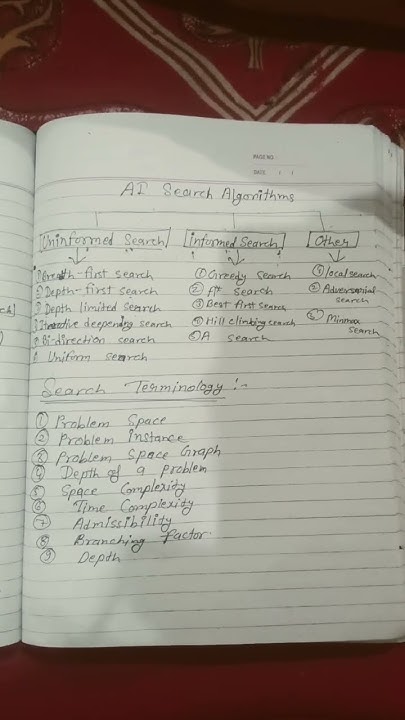 PAGE NO.
DATE / /
AI Search Algorithms
Uninformed Search
① Breath-first search
② Depth-first search
③ Depth limited search
Iterative deepening search
Bi-direction search
Uniform search
Informed Search
① Greedy search
② A* search
③ Best first search
④ Hill climbing search
⑤ A search
Other
① local search
② Adversarial
search
③ Minmax
search
Search Terminology :-
① Problem Space
② Problem Instance
③ Problem Space Graph
④ Depth of a problem
⑤ Space Complexity
⑥ Time Complexity
⑦ Admissibility
⑧ Branching factor
⑨ Depth